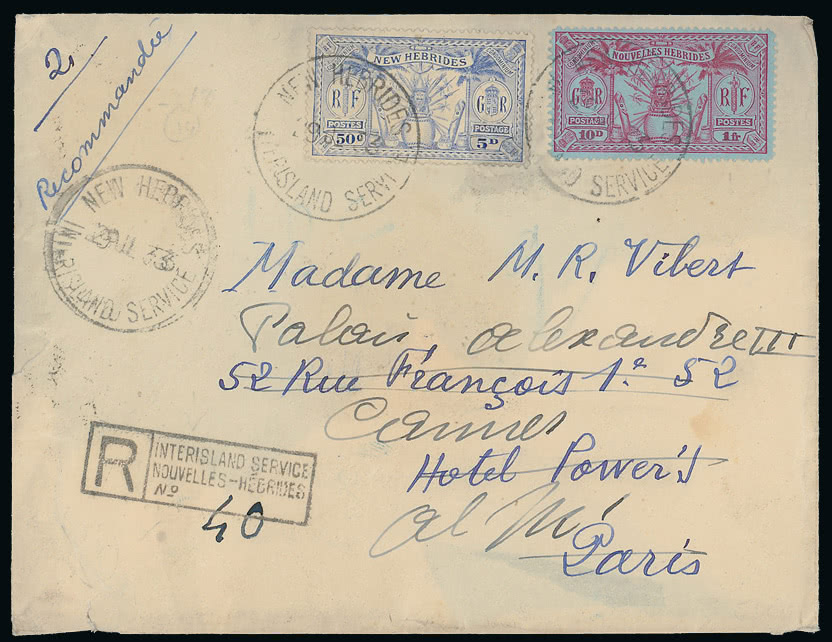 2,
Recommandée
NEW HEBRIDES
RF
GR
POSTES
POSTAGE
50c
5D
NOUVELLES HEBRIDES
GR
RF
POSTAGE
POSTES
10D
1fr.
NEW HEBRIDES
INTERISLAND SERVICE
SERVICE
NEW HEBRIDES
29 JUL 33
INTERISLAND SERVICE
Madame M. R. Vibert
Palais Alexandre III
52 Rue François 1er 52
Cannes
Hotel Power's
al Mi
Paris
R
INTERISLAND SERVICE
NOUVELLES-HÉBRIDES
No
40